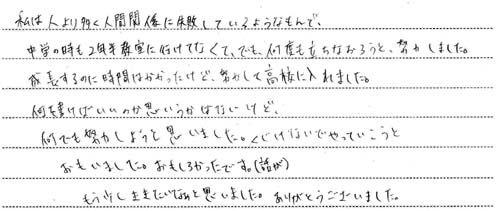 私は人より多く人間関係に失敗しているようなもんで、
中学の時も2年半教室に行けてなくて、でも、何度も立ちなおろうと、努力しました。
成長するのに時間はかかったけど、努力して高校に入れました。
何を書けばいいのか思いうかばないけど、
何でも努力しようと思いました。くじけないでやっていこうと
おもいました。おもしろかったです。(話が)
もう少し生きたいなあと思いました。ありがとうございました。